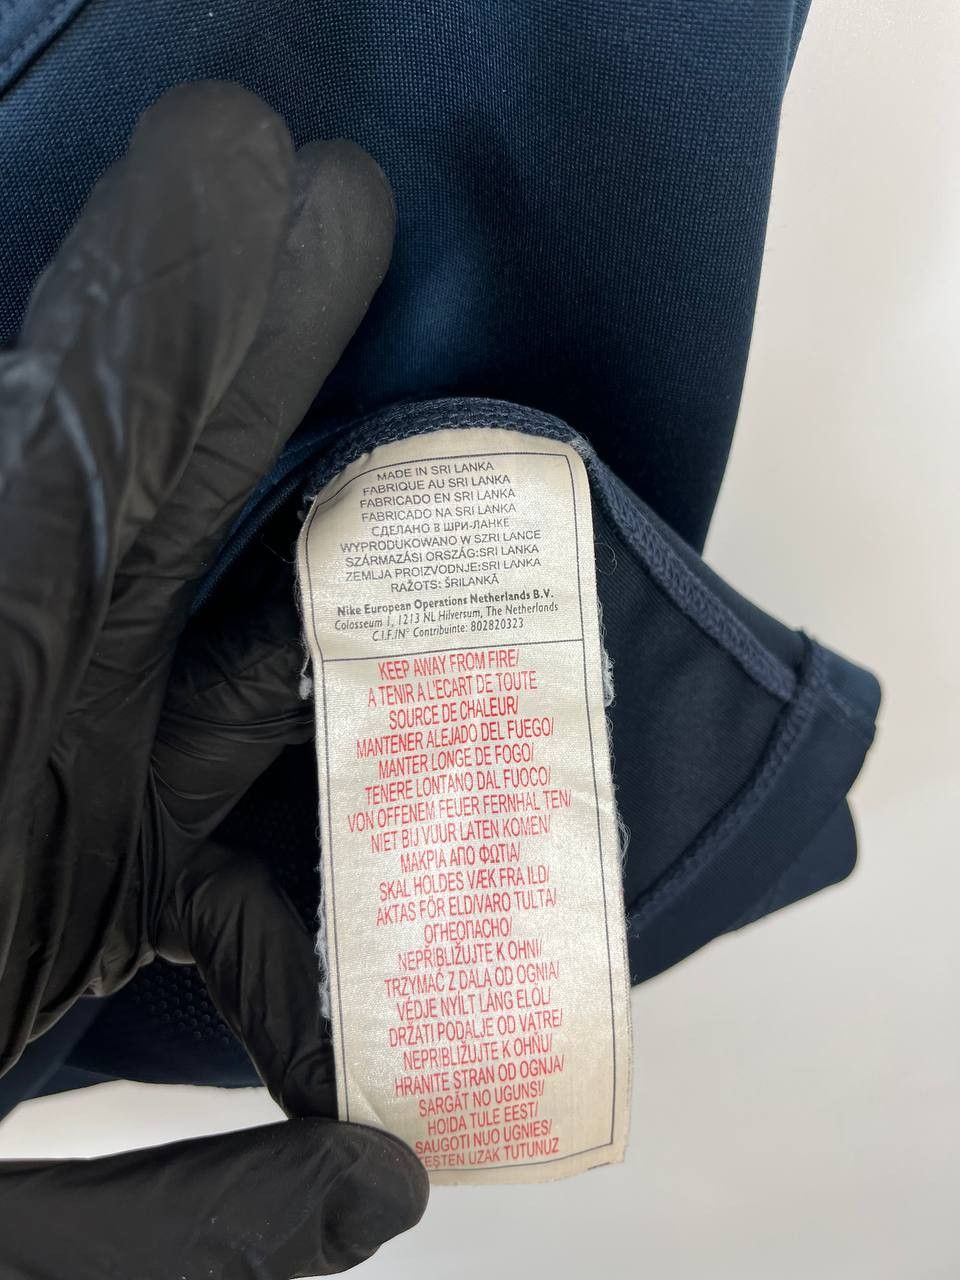 MADE IN SRI LANKA
FABRIQUE AU SRI LANKA
FABRICADO EN SRI LANKA
FABRICADO NA SRI LANKA
СДЕЛАНО В ШРИ-ЛАНКЕ
WYPRODUKOWANO W SZRI LANCE
SZÁRMAZÁSI ORSZÁG:SRI LANKA
ZEMLJA PROIZVODNJE:SRI LANKA
RAŽOTS: ŠRILANKĀ
Nike European Operations Netherlands B.V.
Colosseum 1, 1213 NL Hilversum, The Netherlands
C.I.F./N° Contribuinte: 802820323
KEEP AWAY FROM FIRE/
A TENIR A L'ECART DE TOUTE
SOURCE DE CHALEUR/
MANTENER ALEJADO DEL FUEGO/
MANTER LONGE DE FOGO/
TENERE LONTANO DAL FUOCO/
VON OFFENEM FEUER FERNHAL TEN/
NIET BIJ VUUR LATEN KOMEN/
ΜΑΚΡΙΑ ΑΠΟ ΦΩΤΙΑ/
SKAL HOLDES VÆK FRA ILD/
AKTAS FÖR ELD/VARO TULTA/
ОГНЕОПАСНО/
NEPŘIBLIŽUJTE K OHNI/
TRZYMAĆ Z DALA OD OGNIA/
VÉDJE NYÍLT LÁNG ELŐL/
DRŽATI PODALJE OD VATRE/
NEPRIBLIŽUJTE K OHŇU/
HRANITE STRAN OD OGNJA/
SARGĀT NO UGUNS!/
HOIDA TULE EEST/
SAUGOTI NUO UGNIES/
TEŞTEN UZAK TUTUNUZ